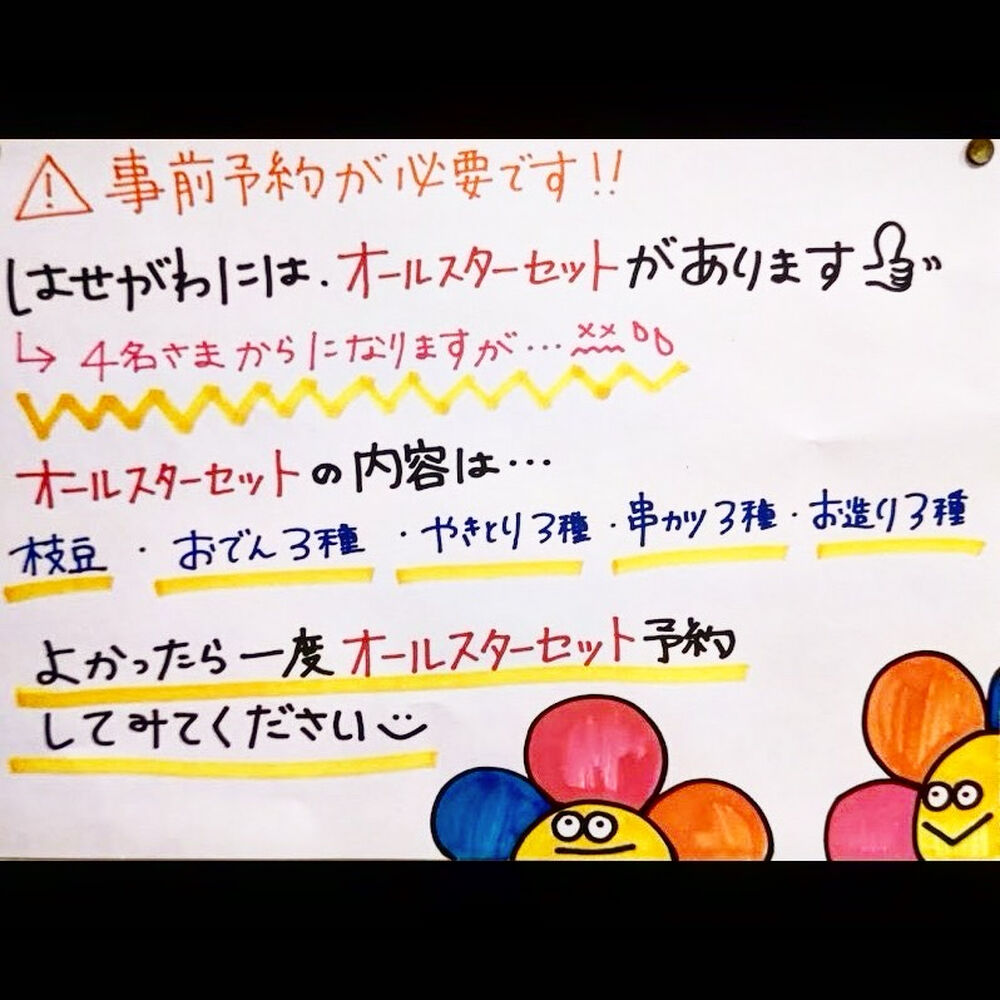 事前予約が必要です!!
はせがわには、オールスターセットがあります
↳ 4名さまからになりますが…
オールスターセットの内容は…
枝豆・おでん3種・やきとり3種・串カツ3種・お造り3種
よかったら一度オールスターセット予約
してみてください